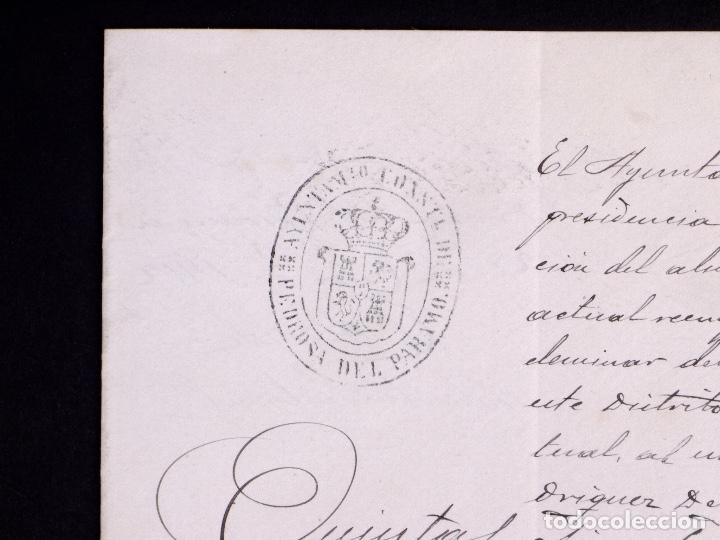 AYUNTAM.TO CONSTL. DE
PEDROSA DEL PARAMO.
El Ayunta
presidencia
ción del alis
actual reem
deminar del
este Distrito
tual, al
driguez De
Quintas
todocoleccion
todocoleccion.net